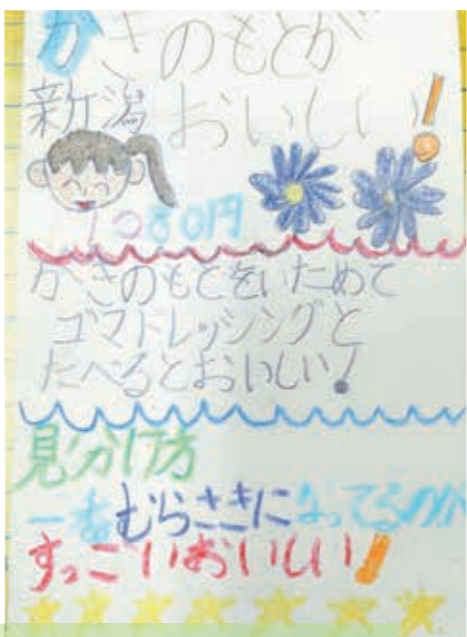 かきのもとが
新潟 おいしい!
1つ80円
かきのもとをいためて
ゴマドレッシングと
たべるとおいしい!
見分け方
一番むらさきになってるのが
すっごいおいしい!